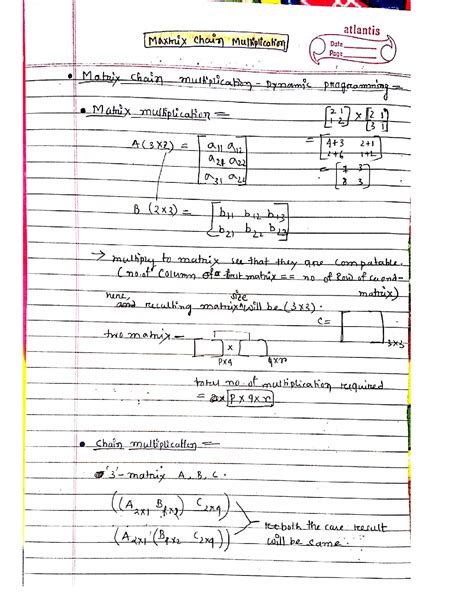 Maxtrix Chain Multiplication
atlantis
Date
Page
• Matrix Chain multiplication - Dynamic programming =
• Matrix multiplication =
[2 1
1 2] × [2 1
3 1]
A (3×2) = [a11 a12
a21 a22
a31 a22]
= [4+3 2+1
2+6 1+2]
= [7 3
8 3]
B (2×3) = [b11 b12 b13
b21 b22 b23]
→ multiply to matrix see that they are compatable.
(no. of Column of first matrix == no of Row of second-
matrix)
here,
and resulting matrix size will be (3×3).
C = [ ] 3×3
two matrix - [ ] p×q × [ ] q×r
total no of multiplication required
= p × q × r
• Chain multiplication =
'3'-matrix A, B, C.
((A2×1 B1×2) C2×4)
(A2×1 (B1×2 C2×4))
both the case result
will be same.